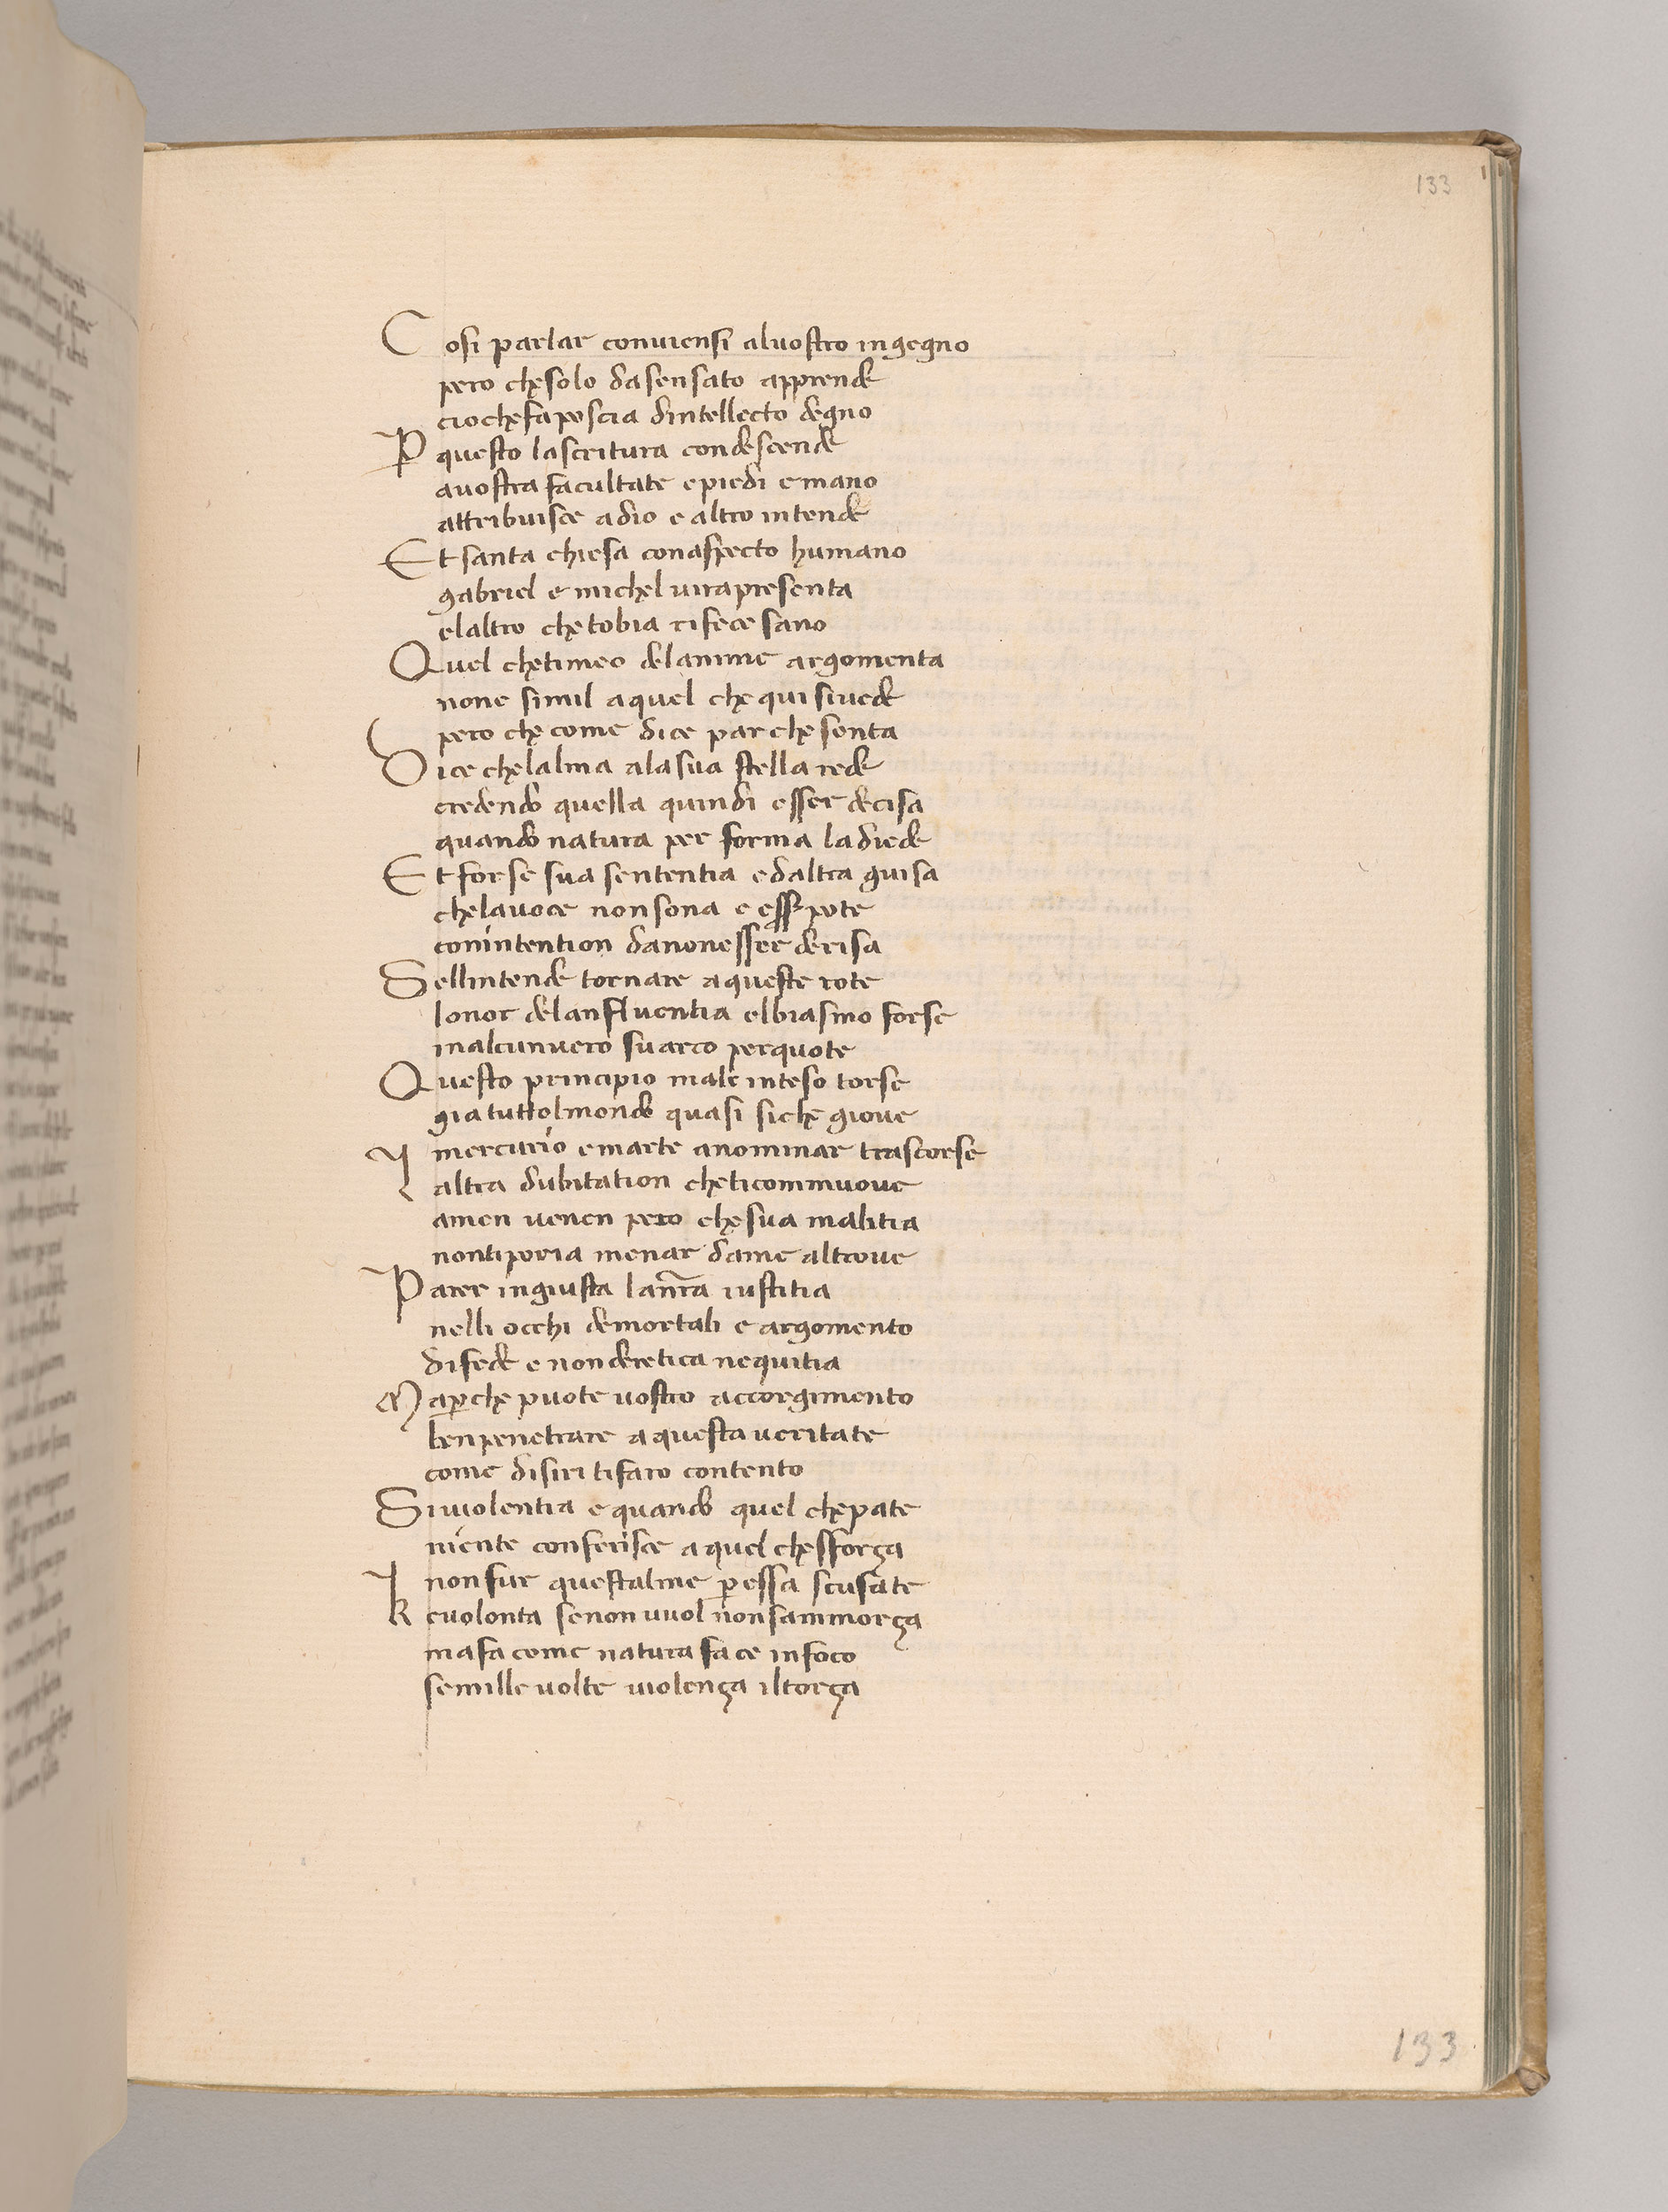 133
Cosi parlar conuiensi aluostro ingegno
pero che solo dasensato apprende
cioche fa poscia dintellecto degno
P questo lascritura condescende
auostra facultate e piedi e mano
attribuisce adio e altro intende
Et santa chiesa conaspecto humano
gabriel e michel uirapresenta
elaltro che tobia rifece sano
Quel chetimeo delanime argomenta
none simil aquel che qui siuede
pero che come dice par che senta
Dice chelalma alasua stella rede
credendo quella quindi esser decisa
quando natura per forma ladiede
Et forse sua sententia edaltra guisa
chelauoce nonsona e esser pote
conintention danonesser derisa
Sellintende tornare aqueste rote
lonor delanfluentia elbiasmo forse
malcunuero suarco perquote
Questo principio male inteso torse
gia tuttolmondo quasi siche gioue
mercurio emarte anominar trascorse
I altra dubitation cheticommuoue
amen uenen pero che sua malitia
nontiporia menar dame altroue
Parer ingiusta lanr̄a iustitia
nelli occhi demortali e argomento
difede e nonderetica nequitia
Maꝑche puote uostro accorgimento
benpenetrare aquesta ueritate
come disiri tifaro contento
Siuiolentia e quando quel chepate
niente conferisce aquel chesforça
I nonfur questalme ꝑ essa scusate
R euolonta senon uuol nonsammorça
mafa come natura face infoco
semille uolte uiolença iltorça
133